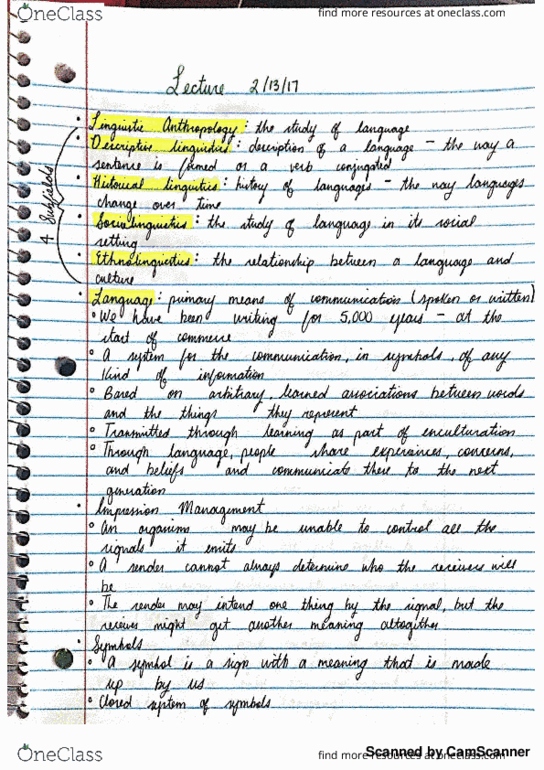 OneClass
find more resources at oneclass.com
Lecture 2/13/17
• Linguistic Anthropology: the study of language
• Descriptive linguistics: description of a language - the way a
sentence is formed or a verb conjugated
• Historical linguistics: history of languages - the way languages
change over time
• Sociolinguistics: the study of language in its social
setting
• Ethnolinguistics: the relationship between a language and
culture
4 Subfields
• Language: primary means of communication (spoken or written)
° We have been writing for 5,000 years - at the
start of commerce
° A system for the communication, in symbols, of any
kind of information
° Based on arbitrary, learned associations between words
and the things they represent
° Transmitted through learning as part of enculturation
° Through language, people share experiences, concerns,
and beliefs and communicate these to the next
generation
• Impression Management
° An organism may be unable to control all the
signals it emits
° A sender cannot always determine who the receivers will
be
° The sender may intend one thing by the signal, but the
receiver might get another meaning altogether
• Symbols
° A symbol is a sign with a meaning that is made
up by us
° Closed system of symbols
OneClass
find more resources at oneclass.com
Scanned by CamScanner